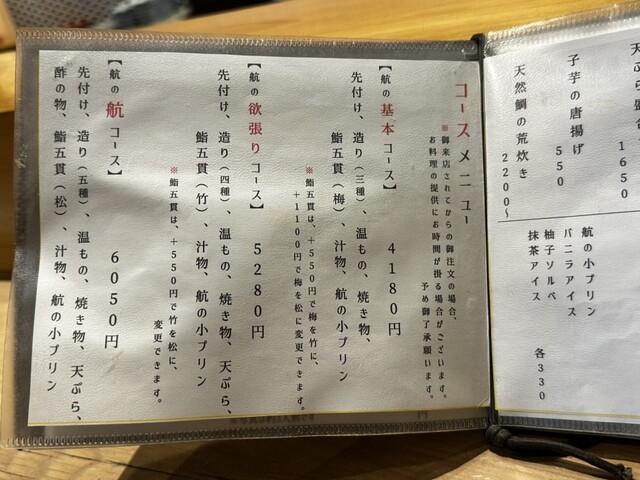 天ぷら盛
1650
子芋の唐揚げ
550
天然鯛の荒炊き
2200〜
航の小プリン
バニラアイス
柚子ソルベ
抹茶アイス
各330
コースメニュー
※御来店されてからの御注文の場合、
お料理の提供にお時間が掛る場合がございます。
予め御了承願います。
【航の基本コース】 4180円
先付け、造り(三種)、温もの、焼き物、
鮨五貫(梅)、汁物、航の小プリン
※鮨五貫は、+550円で梅を竹に、
+1100円で梅を松に変更できます。
【航の欲張りコース】 5280円
先付け、造り(四種)、温もの、焼き物、天ぷら、
鮨五貫(竹)、汁物、航の小プリン
※鮨五貫は、+550円で竹を松に、
変更できます。
【航の航コース】 6050円
先付け、造り(五種)、温もの、焼き物、天ぷら、
酢の物、鮨五貫(松)、汁物、航の小プリン